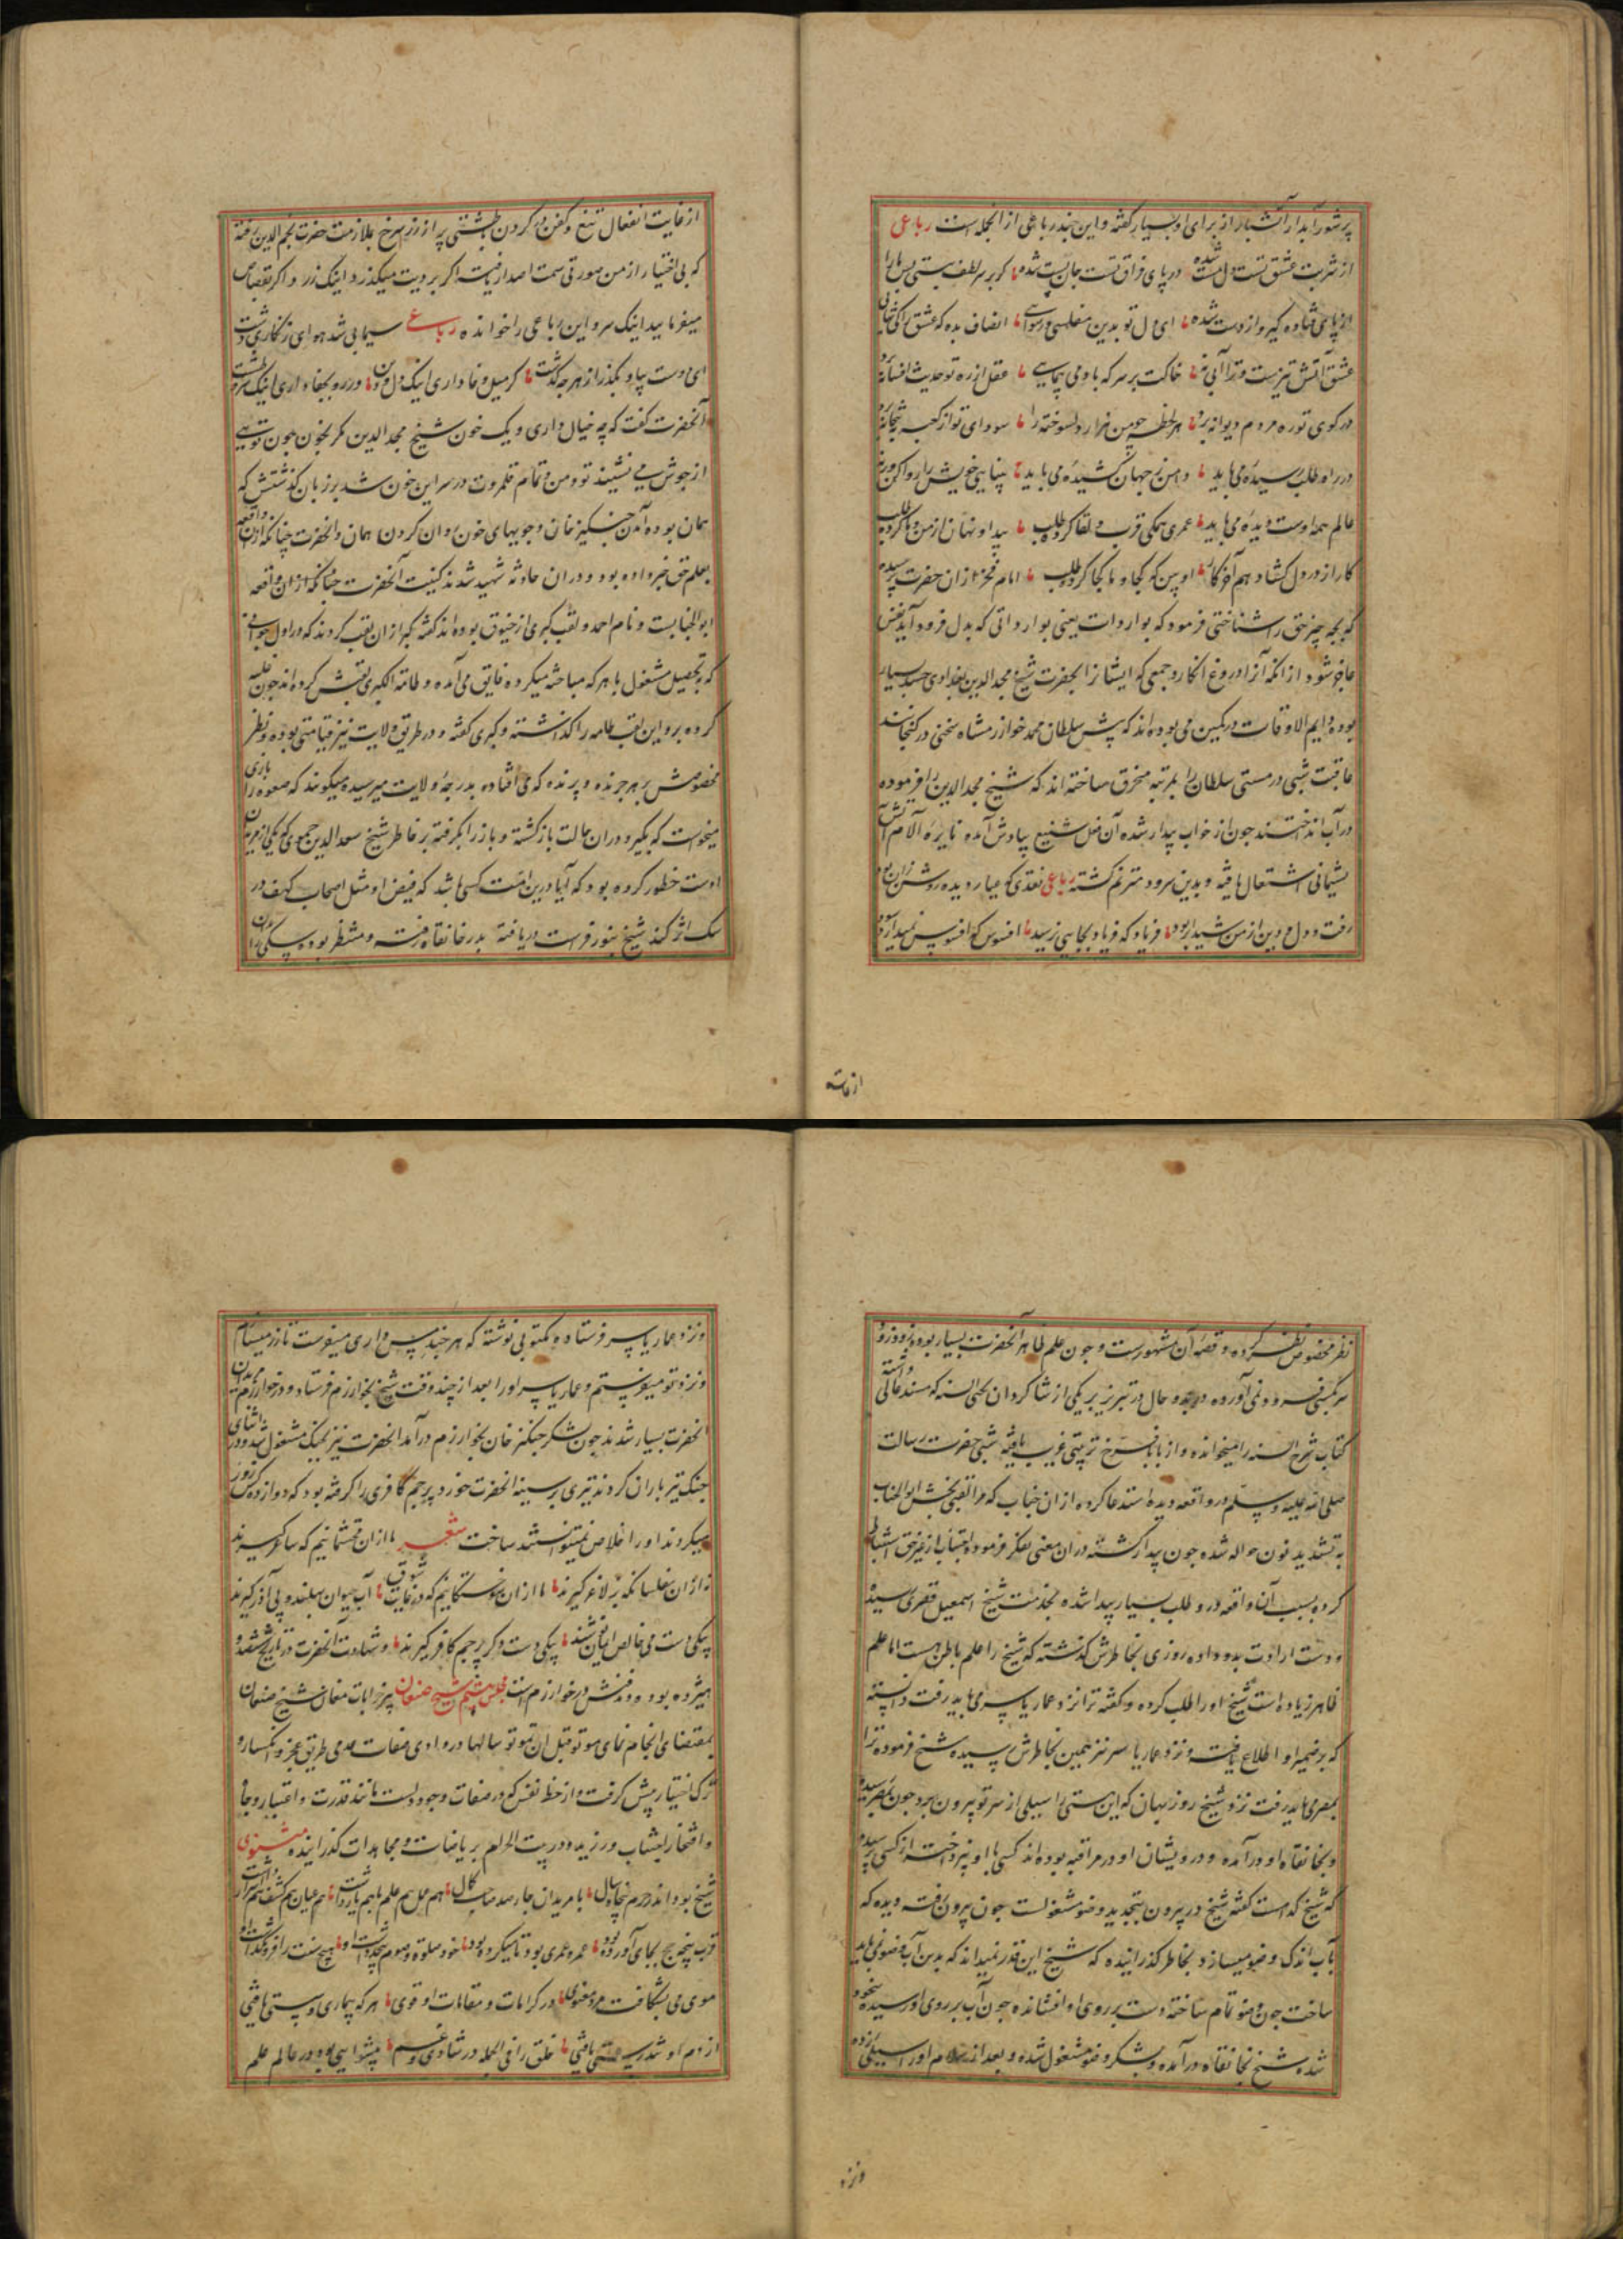 پرشور آبدار آتشبار از برای او بسیار گفته و این چند رباعی از انجمله است رباعی
از شربت عشق تست دل مست شده در پای فراق تست جان پست شده
از پای فتاده گیر و از دست شده ای دل تو بدین مفلسی و رسوایی انصاف بده که عشق را کی شایی
عشق آتش تیزست و ترا آبی نه خاکت بر سر که باد می پیمایی عقل از ره تو حدیث افسانه برد
در کوی تو ره مردم دیوانه برد هر لحظه چو من هزار دلسوخته را سودای تو از کعبه به بتخانه برد
در راه طلب رسیده می باید دامن ز جهان کشیده می باید بینایی خویش را دوا کن ورنه
عالم همه اوست دیده می باید عمری همگی قرب و لقا کرده طلب پیدا و نهان از من و ما کرده طلب
کار از در دل کشاد هم آخر کار او بین که کجا و ما کجا کرده طلب امام فخر از ان حضرت پرسیده
که بچه چیز حق را شناختی فرمود که بواردات یعنی بوارداتی که بدل فرود آید نفس
عاجز شود از انکه آنرا دروغ انکارد جمعی که ایشانرا بحضرت شیخ مجد الدین بغدادی حسد بسیار
بوده دایم الاوقات در کمین می بوده اند که پیش سلطان محمد خوارزمشاه سخنی در گنجانند
عاقبت شبی در مستی سلطان را بمرتبه منحرف ساخته اند که شیخ مجد الدین را فرموده
در آب انداختند چون از خواب بیدار شده آن فعل شنیع بیادش آمده نایره آلام آتش
پشیمانی اشتعال یافته و بدین سرود مترنم گشته رباعی نقدی که عیار دیده روشن زان بود
رفت و دل و دین از من شیدا ربود فریاد که فریاد بجایی نرسید افسوس که افسوس نمیدارد سود
از غایت
از غایت انفعال تیغ و کفن در گردن و طشتی پر از زر سرخ بملازمت حضرت نجم الدین رفته
که بی اختیار از من صورتی سمت اصدار یافت اگر بر دیت میگذرد اینک زر و اگر بقصاص
میفرمایید اینک سر و این رباعی را خوانده رباعی سیمابی شد هوای زنگاری دشت
ای دوست بیا و بگذر از هر چه گذشت گر میل وفا داری اینک دل و دین ور رو بجفا داری اینک سر و طشت
آنحضرت گفت که چه خیال داری و یک خون شیخ مجد الدین مگر بخون چون تویی
از جوش می نشیند تو و من و تمام قلمروت در سر این خون شد بر زبان گذشتنش که
همان بوده آمدن جنگیز خان و جویهای خون روان کردن همان و آنحضرت چنانکه از ان واقعه
بعلم حق خبر داده بود و در ان حادثه شهید شد کنیت آنحضرت
ابو الجنابست و نام احمد و لقب کبری از خیوق بوده اند گفته کبر از ان لقب کردند که در اول جوانی
که بتحصیل مشغول با هر که مباحثه میکرده فایق می آمده و طامة الکبری لقبش کرده اند چون غلبه
کرده برو این لقب طامه را گذاشته و کبری گفته و در طریق ولایت نیز قیامتی بوده و نظر
مخصوصش بر هر چرنده و پرنده که می افتاده بدرجه ولایت میرسیده میگویند که صعوه را بازی
میخواست که بگیرد در ان حالت باز گشته و باز را گرفته بر خاطر شیخ سعد الدین حموی که یکی از مریدان
اوست خطور کرده بود که آیا درین امت کسی باشد که فیض او مثل اصحاب کهف در
سگ اثر کند شیخ بنور فراست دریافته بدر خانقاه رفته و منتظر بوده سگی را
نظر مخصوص نظر کرده و قصه آن مشهورست و چون علم ظاهر آنحضرت بسیار بوده فرود
سر بکسی فرود نمی آورده در بدو حال در تبریز بر یکی از شاگردان محیی السنه که مسند عالی داشته
کتاب شرح السنه را میخوانده و از بابا فرخ تربیتی غریب یافته شبی حضرت رسالت
صلی الله علیه و سلم در واقعه دیده استدعا کرده از ان جناب که مرا لقبی بخش ابو الجناب
به تشدید نون حواله شده چون بیدار گشته در ان معنی تفکر فرموده اجتناب از غیر حق استنباط
کرده بسبب آن واقعه درد طلب بسیار پیدا شده بخدمت شیخ اسمعیل قصری رسیده
و دست ارادت بدو داده روزی بخاطرش گذشته که شیخ را علم باطن هست اما علم
ظاهر زیاده است شیخ او را طلب کرده و گفته ترا نزد عمار یاسر می باید رفت دانسته
که بر ضمیر او اطلاع یافته و نزد عمار یاسر نیز همین بخاطرش رسیده شیخ فرموده ترا
بمصر می باید رفت نزد شیخ روزبهان که این هستی را بسیلی از سر تو بیرون برد چون بمصر رسیده
و بخانقاه او در آمده و درویشان او در مراقبه بوده اند کسی با او نپرداخت از کسی پرسیده
که شیخ کدامست گفته شیخ در بیرون بتجدید وضو مشغولست چون بیرون رفته دیده که
بآب اندک وضو میسازد بخاطر گذرانیده که شیخ این قدر نمیداند که بدین آب وضو نمی باید
ساخت چون وضو تمام ساخته دست بر روی او افشانده چون آب بر روی او رسیده بیخود
شده شیخ بخانقاه در آمده و بشکر وضو مشغول شده و بعد از سلام او را سیلی زده
و نزد
و نزد عمار یاسر فرستاده و مکتوبی نوشته که هر چند مس داری میفرست تا زر میسازم
و نزد تو میفرستم و عمار یاسر او را بعد از چند وقت شیخ بخوارزم فرستاد و در خوارزم مریدان
آنحضرت بسیار شدند چون لشکر جنگیز خان بخوارزم در آمد آنحضرت نیز بجنگ مشغول شد و در اثنای
جنگ تیر باران کردند تیری بر سینه آنحضرت خورد پرچم کافری را گرفته بود که دوازده کس زور
میکردند او را خلاص نمیتوانستند ساخت شعر ما از ان محتشمانیم که ساغر گیرند
نه از ان مفلسکان که بز لاغر گیرند
بیکی دست می خالص ایمان نوشند بیکی دست دگر پرچم کافر گیرند و شهادت آنحضرت در تاریخ ششصد و
هیژده بوده و مدفنش در خوارزم است مجلس هشتم شیخ صنعان پیر خرابات مغان شیخ صنعان
بمقتضای انجام نمای موتوا قبل ان تموتوا سالها در وادی صفات عدمی طریق عجز و انکسار و
ترک اختیار پیش گرفت و از حظ نفس که در صفات وجودیست مانند قدرت و اعتبار و جاه
و افتخار اجتناب ورزیده و در بیت الحرام بریاضات و مجاهدات گذرانیده مثنوی
شیخ بود اندر حرم پنجاه سال با مریدان چارصد صاحب کمال هم عمل هم علم با هم یار داشت هم عیان هم کشف هم اسرار داشت
قرب پنجه حج بجای آورده بود عمره عمری بود تا میکرده بود خود صلوة و صوم بیحد داشت او هیچ سنت را فرو نگذاشت او
موی می بشکافت مرد معنوی در کرامات و مقامات او قوی هر که بیماری و سستی یافتی
از دم او تندرستی یافتی خلق را فی الجمله در شادی و غم پیشوایی بود در عالم علم